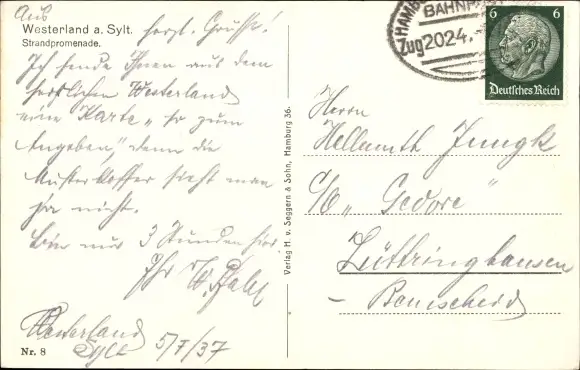 Aus
Westerland a. Sylt. herzl. Grüsse!
Strandpromenade.
Ich sende Ihnen aus dem
herrlichen Westerland
eine Karte „so zum
Angeben", denn die
Musterkoffer sieht man
ja nicht.
Bin nur 3 Stunden hier.
Ihr
Westerland
Sylt 5/7/37
Nr. 8
Verlag H. v. Seggern & Sohn, Hamburg 36.
HAMB
BAHNPO
Zug 2024
6 6
Deutsches Reich
Herrn
Hellmuth Jungk
C/o „Gedore"
Lüttringhausen
- Remscheid